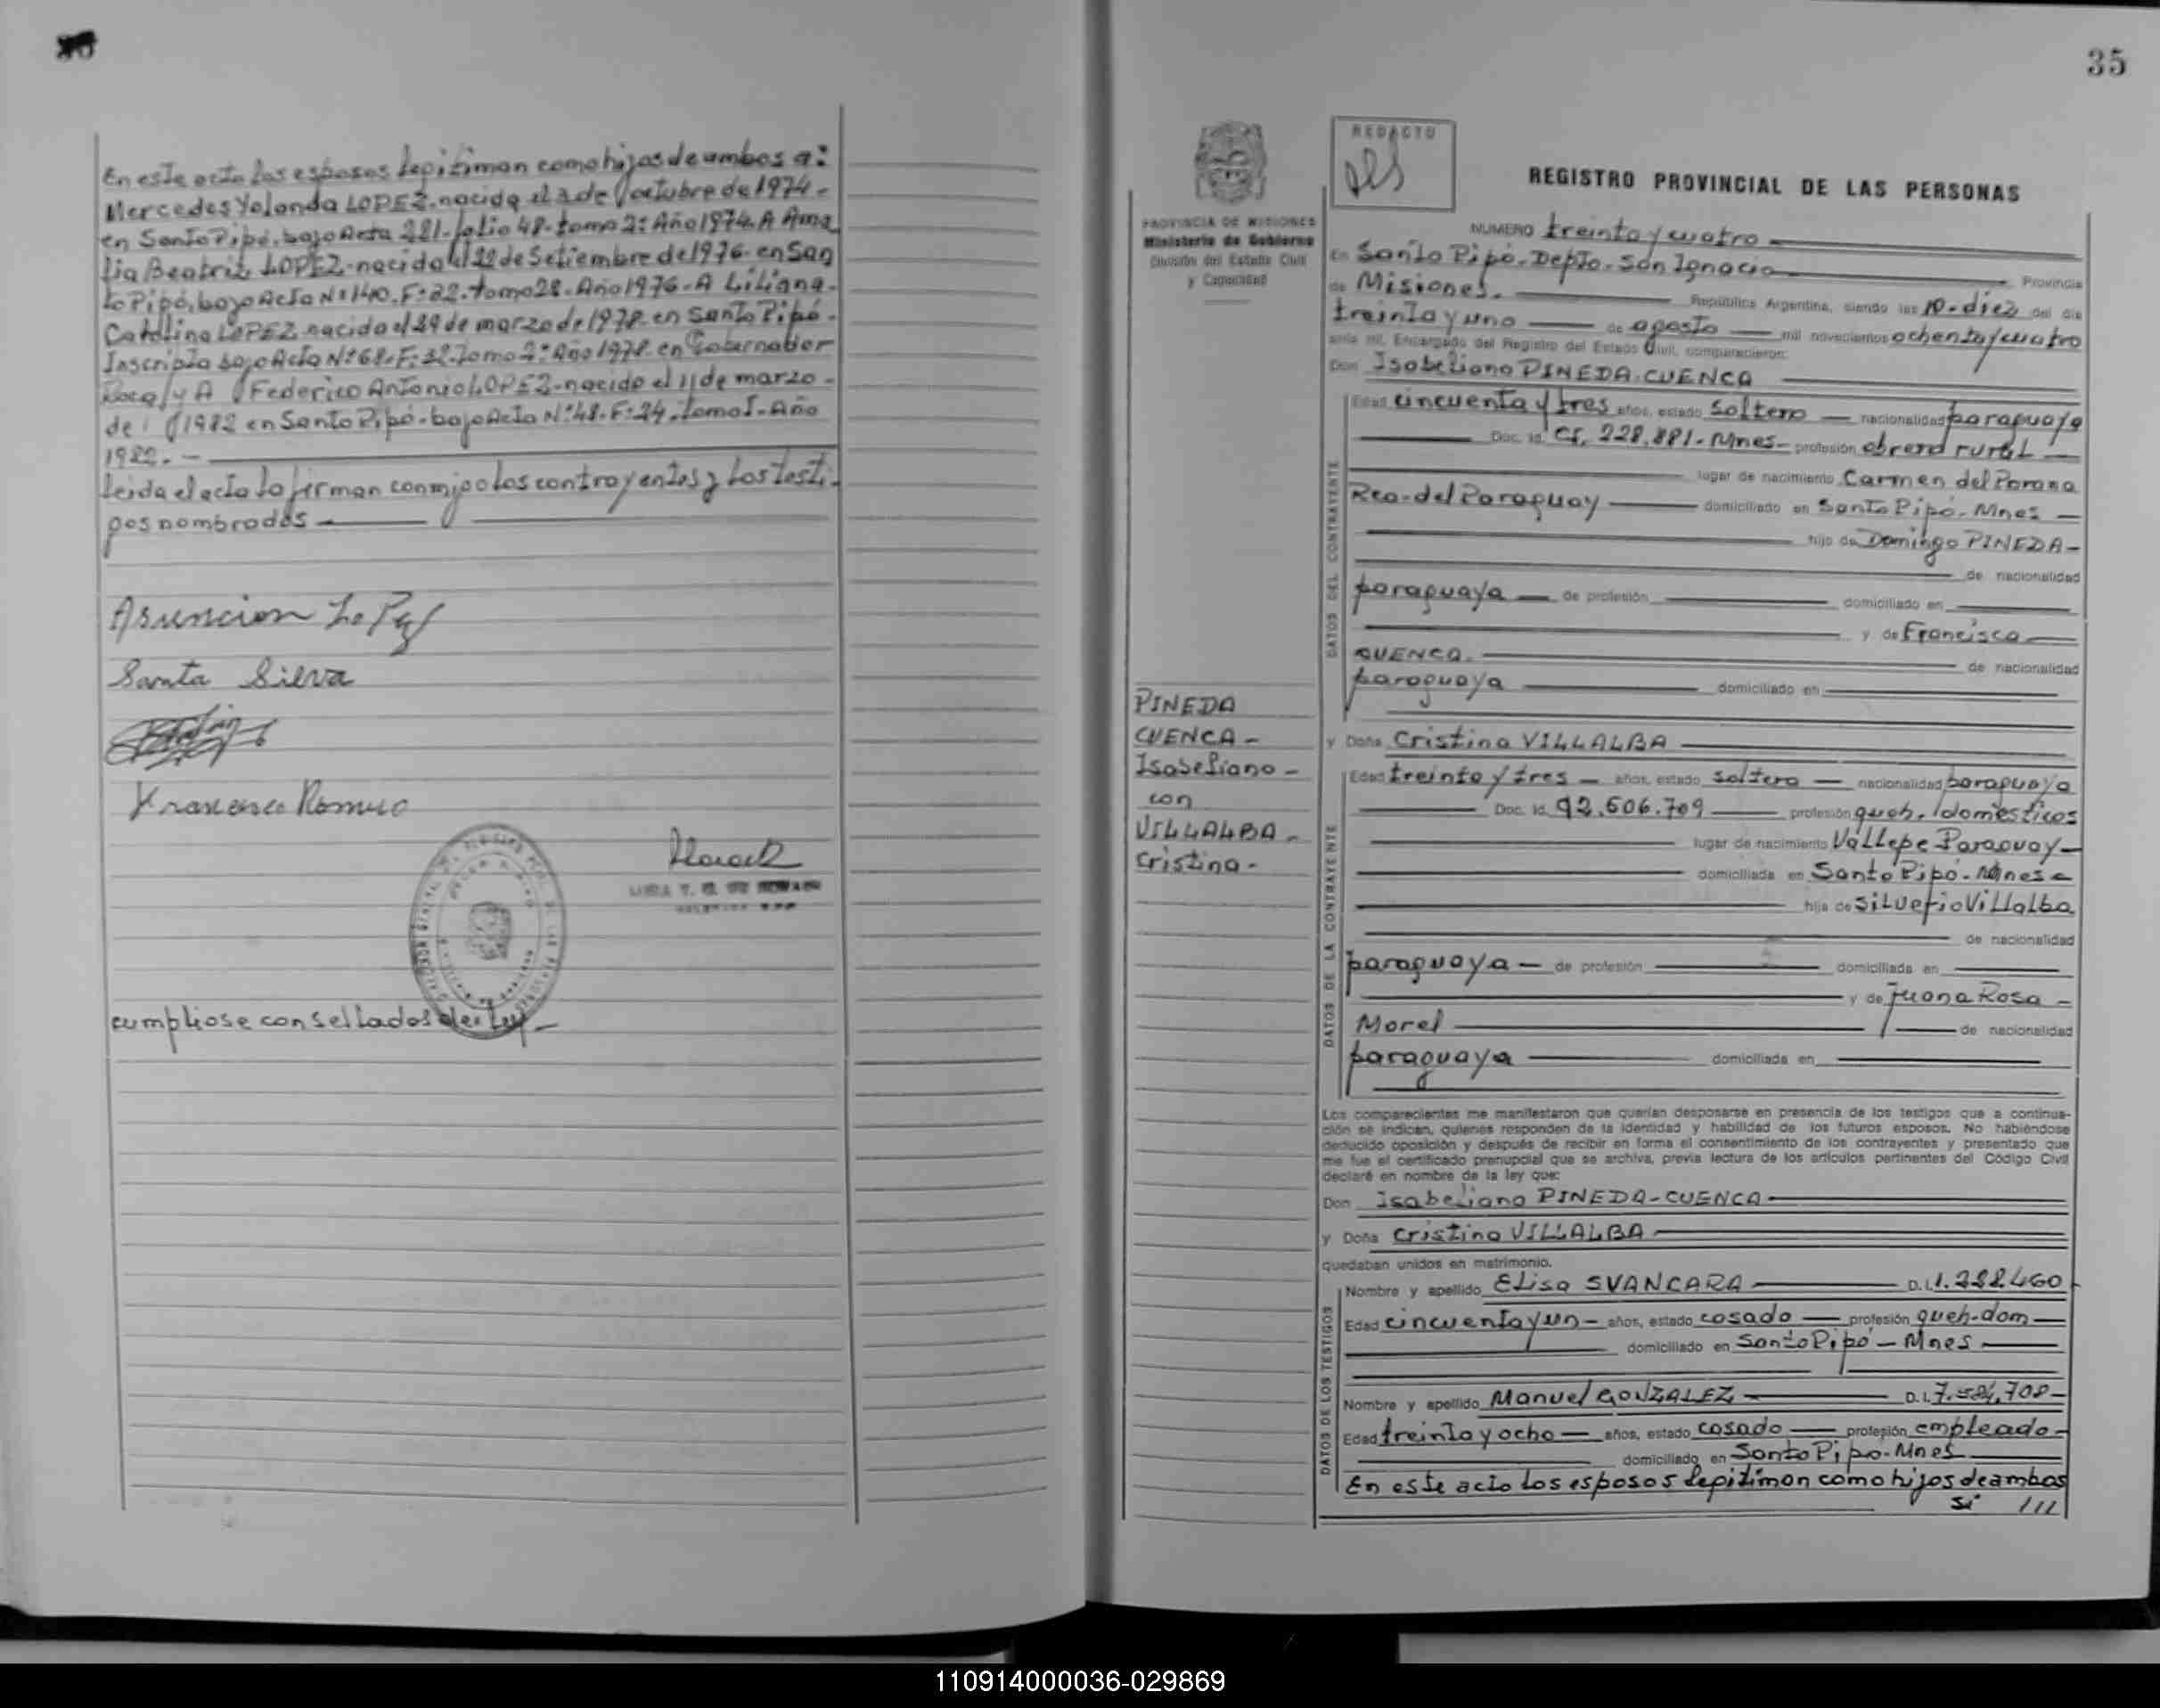 En este acto los esposos legitiman como hijos de ambos a:
Mercedes Yolanda LOPEZ-nacida el 3 de octubre de 1974-
en Santo Pipó, bajo Acta 221-folio 48-tomo 2: Año 1974. A Ama
lia Beatriz LOPEZ-nacida el 22 de Setiembre de 1976-en San
to Pipó, bajo Acta Nº140. F:22. tomo 2º-Año 1976-A Liliana-
Catalina LOPEZ-nacida el 29 de marzo de 1978-en Santo Pipó-
Inscripta bajo Acta Nº68-F:32. Tomo 2º Año 1978-en Gobernador
Roca/y A Federico Antonio LOPEZ-nacido el 11 de marzo-
de 1982 en Santo Pipó-bajo Acta Nº:48-F:24. tomo I-Año
1982.-
Leida el acta la firman conmigo los contrayentes y los testi-
gos nombrados
Asuncion Lopez
Santa Silva
Francisco Romero
cumpliose con sellados de Ley-
35
REDACTO
REGISTRO PROVINCIAL DE LAS PERSONAS
PROVINCIA DE MISIONES
Ministerio de Gobierno
División del Estado Civil
y Capacidad
NUMERO treinta y cuatro
En Santo Pipó-Depto-San Ignacio Provincia
de Misiones. República Argentina, siendo las 10-diez del día
treinta y uno de agosto mil novecientos ochenta y cuatro
ante mí, Encargado del Registro del Estado Civil, comparecieron:
Don Isabeliano PINEDA-CUENCA
DATOS DEL CONTRAYENTE
Edad cincuenta y tres años, estado soltero nacionalidad paraguaya
Doc. Id. CI. 228.881-Mnes- profesión obrero rural
lugar de nacimiento Carmen del Parana
Rca-del Paraguay domiciliado en Santo Pipó-Mnes
hijo de Domingo PINEDA-
de nacionalidad
paraguaya de profesión domiciliado en
y de Francisca
CUENCA de nacionalidad
paraguaya domiciliado en
PINEDA
CUENCA-
Isabeliano-
con
VILLALBA-
Cristina-
y Doña Cristina VILLALBA
DATOS DE LA CONTRAYENTE
Edad treinta y tres años, estado soltera nacionalidad paraguaya
Doc. Id. 92.606.709 profesión queh. domésticos
lugar de nacimiento Vallepe Paraguay
domiciliada en Santo Pipó-Mnes
hija de Silverio Villalba
de nacionalidad
paraguaya- de profesión domiciliada en
y de Juana Rosa-
Morel de nacionalidad
paraguaya domiciliada en
Los comparecientes me manifestaron que querían desposarse en presencia de los testigos que a continua-
ción se indican, quienes responden de la identidad y habilidad de los futuros esposos. No habiéndose
deducido oposición y después de recibir en forma el consentimiento de los contrayentes y presentado que
me fue el certificado prenupcial que se archiva, previa lectura de los artículos pertinentes del Código Civil
declaré en nombre de la ley que:
Don Isabeliano PINEDA-CUENCA
y Doña Cristina VILLALBA
quedaban unidos en matrimonio.
DATOS DE LOS TESTIGOS
Nombre y apellido Elisa SVANCARA D.I. 1.288.460
Edad cincuenta y un- años, estado casado profesión queh-dom
domiciliado en Santo Pipó-Mnes
Nombre y apellido Manuel GONZALEZ D.I. 7.584.708-
Edad treinta y ocho años, estado casado profesión empleado-
domiciliado en Santo Pipo-Mnes
En este acto los esposos legitiman como hijos de ambos
Si ///
110914000036-029869